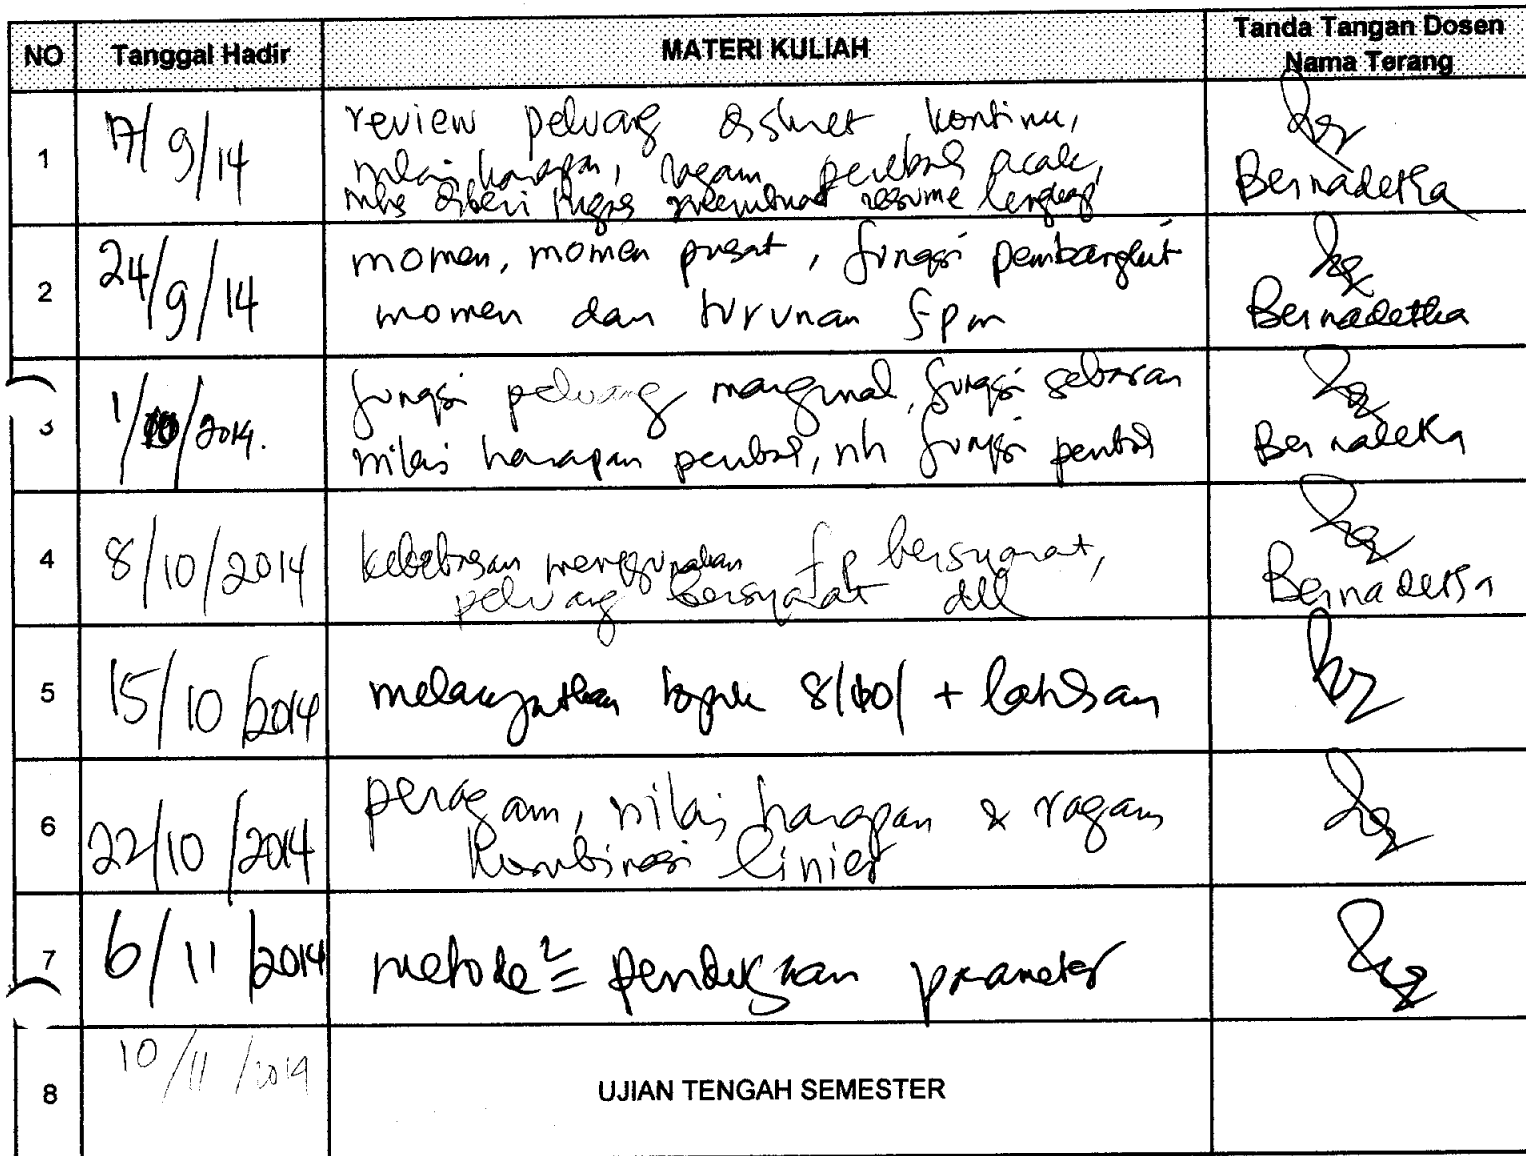 NO Tanggal Hadir MATERI KULIAH Tanda Tangan Dosen
Nama Terang
1 17/9/14 review peluang diskret, kontinu,
nilai harapan, ragam peubah acak,
mhs diberi tugas membuat resume lengkap
Bernadetha
2 24/9/14 momen, momen pusat, fungsi pembangkit
momen dan turunan fpm
Bernadetha
3 1/10/2014. fungsi peluang marginal, fungsi sebaran
nilai harapan peubah, nh fungsi peubah
Bernadetha
4 8/10/2014 kebebasan menggunakan fp bersyarat,
peluang bersyarat dll
Bernadetha
5 15/10/2014 melanjutkan topik 8/10/ + latihan
6 22/10/2014 peragam, nilai harapan & ragam
kombinasi linier
7 6/11/2014 metode² pendugaan parameter
8 10/11/2014 UJIAN TENGAH SEMESTER